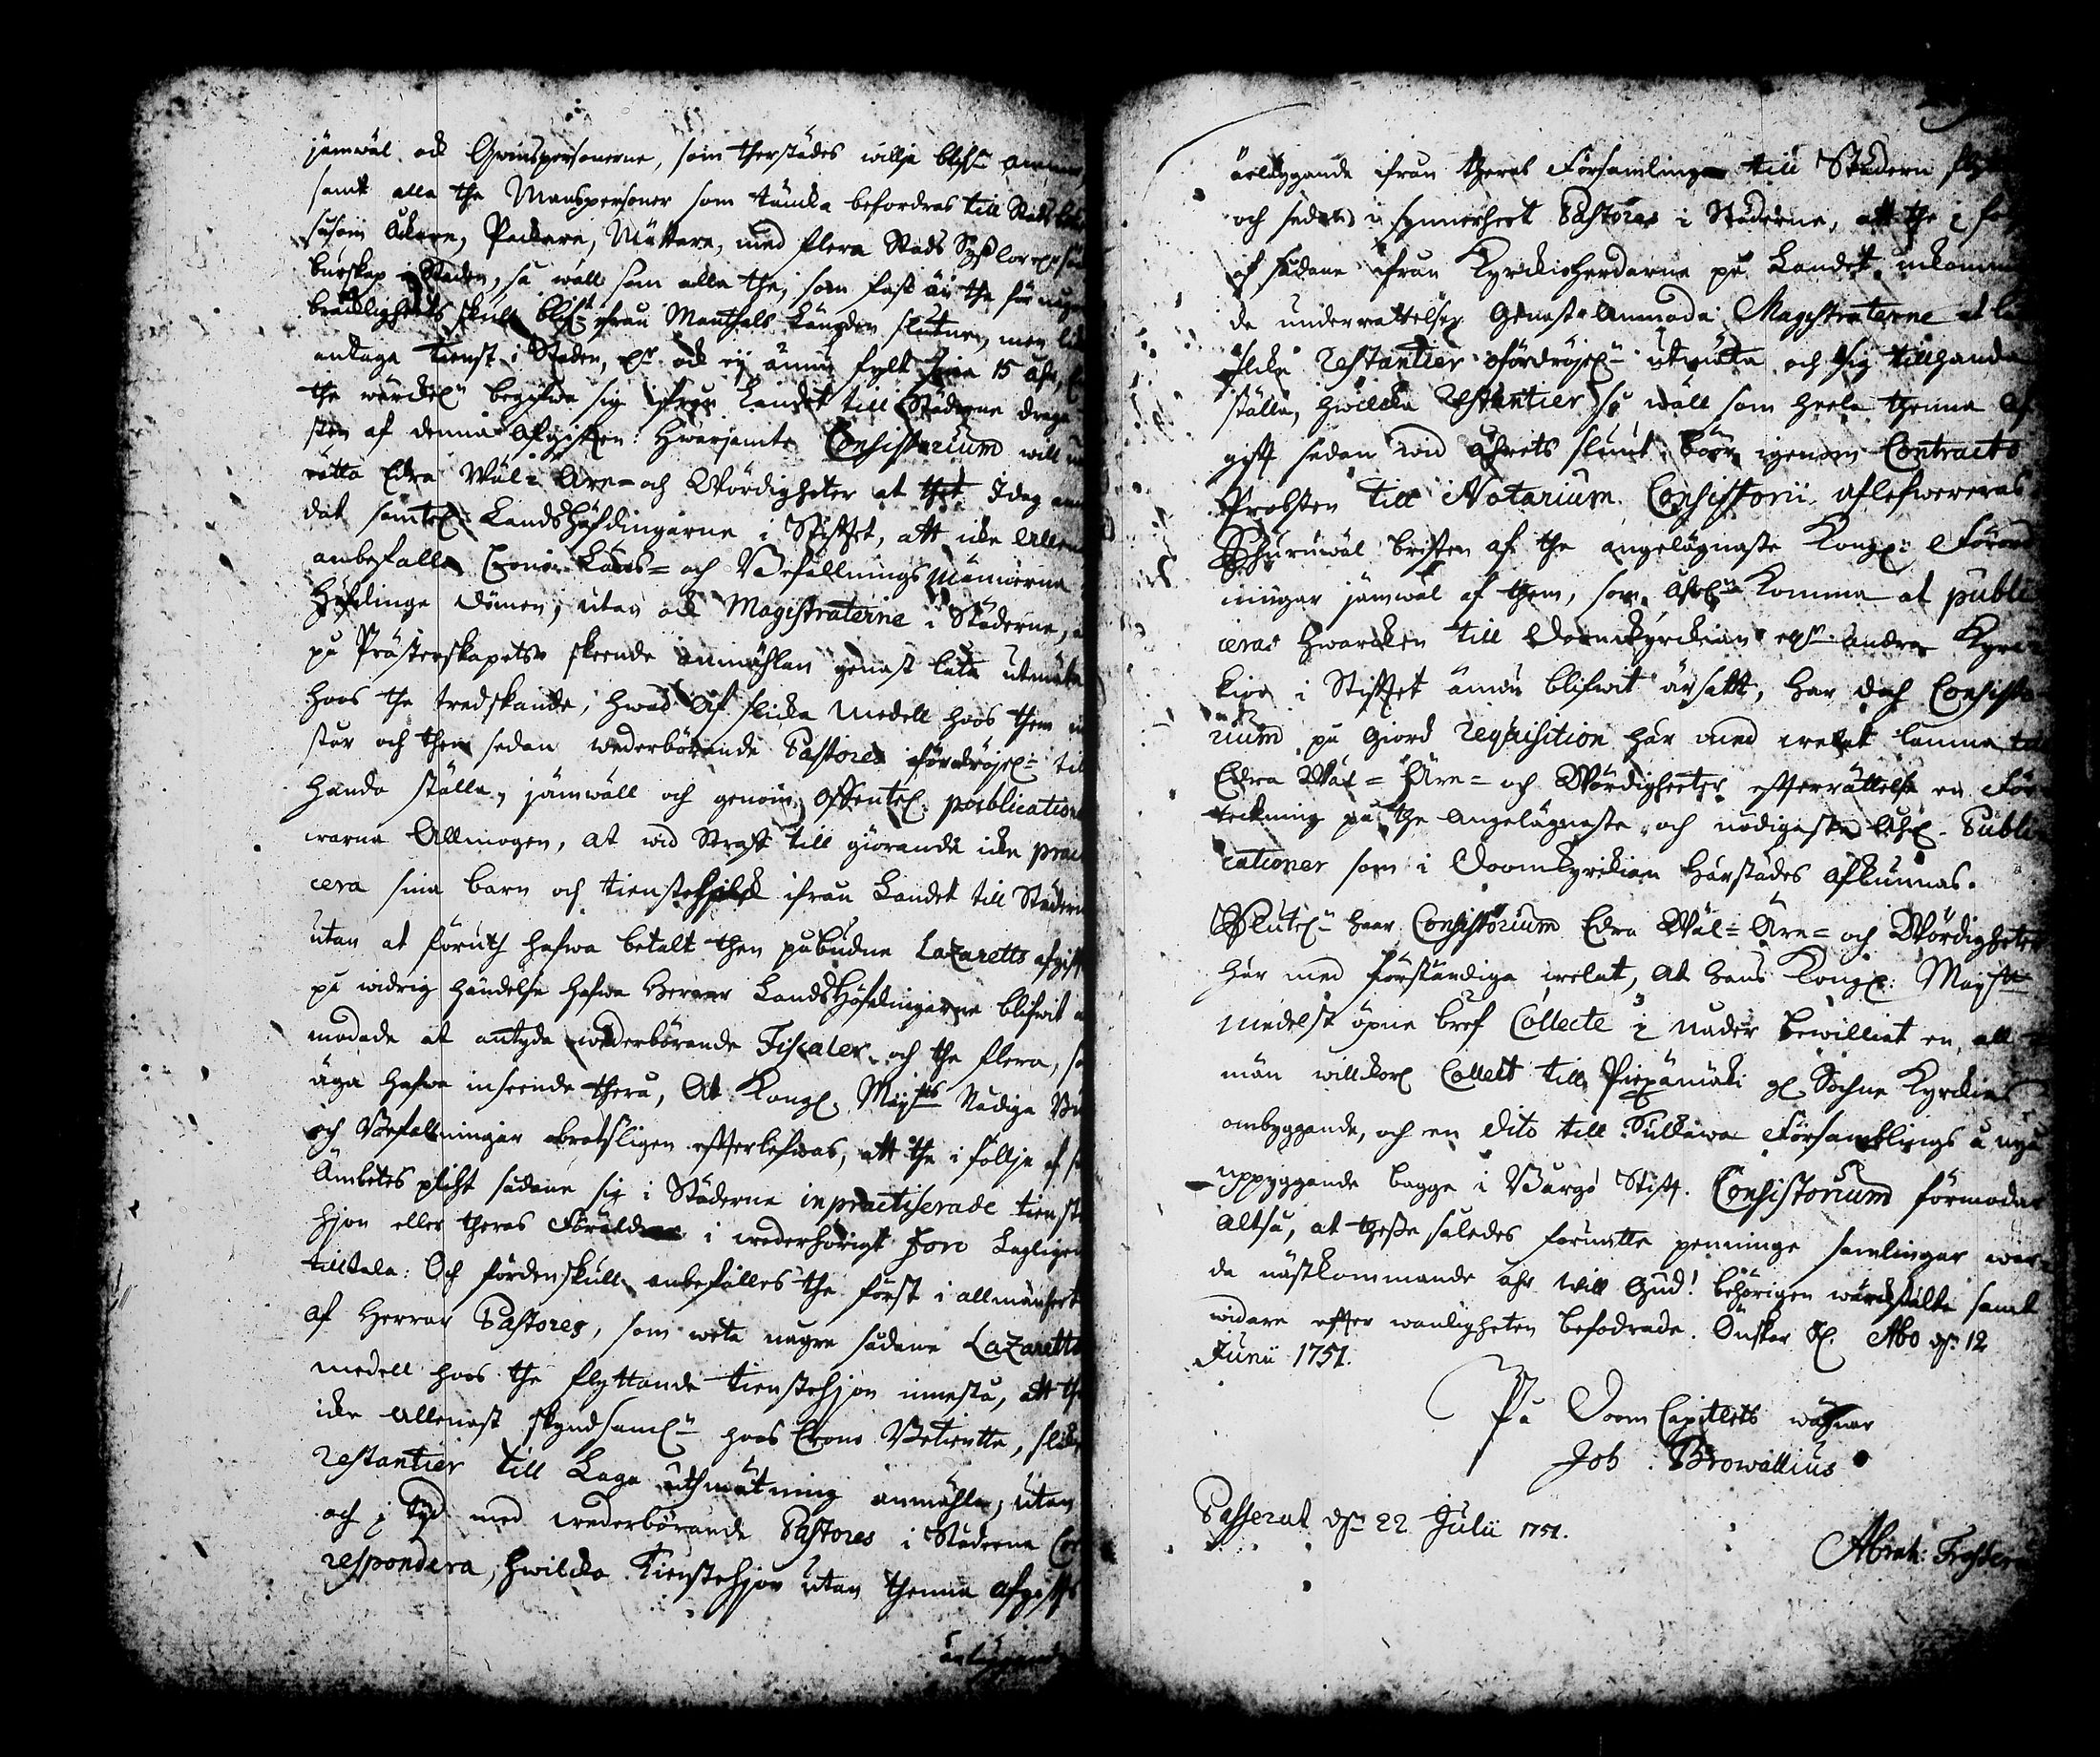 jämwäl ock Qwinspersonerne, som therstädes willja blifwa ammor,
samt alla the Manspersoner som täncka befordras till Stads
såsom Åkare, Packare, Mättare, med flera Stads Sysslor
burskap i Staden, så wäll som alla the, som fast än the för någon
bräcklighets skull blifwit ifrån Manthals Längden slutne, men
antaga tienst i Staden, ock ej ännu fylt sina 15 åhr,
the wärckel:n begifwa sig ifrån Landet till Städerne draga
sten af denna Afgiften: Hwarjemte Consistorium will
rätta Edra Wäl= Äre= och Wördigheter at thet Idag
dat samtel: LandsHöfdingarne i Stiftet, att icke allenast
anbefalla Crono Läns= och BefallningsMännerne
Höfdinge dömen, utan ock Magistraterne i Städerne,
på Prästerskapets skeende anmählan genast låta utmäta
hoos the tredskande, hwad af slicka Medell hoos them
står och them sedan wederbörande Pastores ofördröjel: till
handa ställa, jämwäll och genom offentel: publication
warna Allmogen, at wid Straff till giörande icke pract
cera sina barn och tienstehjon ifrån Landet till Städerne
utan at föruth hafwa betalt then påbudne Lazaretts afgift
på widrig händelse hafwa Herrar LandsHöfdingarne blifwit
modade at antyda wederbörande Fiscaler och the flera,
äga hafwa inseende thera, At Kongl: Maij:tts Nådiga
och Befallningar obrotsligen efterlefwas, att the i föllje af
Ämbetes plicht sådane sig i Städerne inpractiserade tienste
hjon eller theras Föräldrar i wederhörigt Foro Lagligen
tilltala: Och fördenskull anbefalles the först i allmänhet
af Herrar Pastores, som weta någre sådane Lazaretts
medell hoos the flyttande tienstehjon innestå, att the
icke allenast skyndsaml:n hoos Crono Betiente, slicka
restantier till Laga uthmätning anmähla, utan
och i tijd med wederbörande Pastores i Städerne Cor
respondera, hwilcka Tienstehjon utan thenna afgifts
ärläggande
ärläggande ifrån theras Församlingar till Städern
och sedan i synnerhet Pastores i Städerne, att the i
af sådane ifrån Kyrckioherdarne på Landet inkomman
de underrättelser Genast Anmoda Magistraterne at
slicka Restantier ofördröjel:n utmäta och sig tillhanda
ställa, hwilcka Restantier så wäll som heela thenna Af
gift sedan wid åhrets slut böör igenom Contracts
Probsten till Notarium Consistorii aflefwereras
Ehuruwäl bristen af the angelägnaste Kongl: Förord
ningar jämwäl af them, som Komma at publi
ceras hwarcken till Doomkyrckian andra Kyrc
kior i Stiftet ännu blifwit ärsatt, har doch Consisto
rium på Giord requisition här med welat lämna till
Edra Wäl= Äre= och Wördigheters efterrättelse en För
teckning på the Angelägnaste och nödigaste Publi
cationer som i Doomkyrckian härstädes afkunnas.
Slutel:n haar Consistorium Edra Wäl= Äre= och Wördigheter
här med förständiga welat, at hans Kongl: Maij:tt
medelst öpne bref Collecte i nåder bewilliat en all
män willckorl: Collect till Piexämäki gl: Sochne Kyrckios
ombyggande, och en dito till Sulkawa Församblings å nyo
uppyggande bägge i Borgå Stift. Consistorium förmodar
Altså, at thesse således förnätte penninge samlingar war
da nästkommande åhr Will Gud! behörigen wärckstälte samt
widare efter wanligheten befodrade. Önskar &c. Åbo d: 12
Junii 1751.
På Doom Capitlets wägnar
Joh: Browallius
Passerat d:n 22 Julii 1751.
Abrah: Frosterus